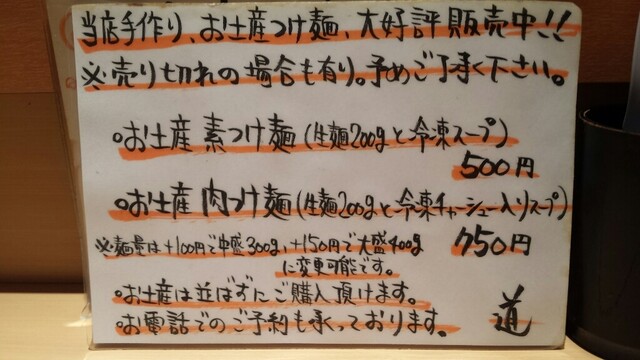 当店手作り、お土産つけ麺、大好評販売中!!
※売り切れの場合も有り。予めご了承く下さい。
○お土産 素つけ麺(生麺200gと冷凍スープ)
500円
○お土産 肉つけ麺(生麺200gと冷凍チャーシュー入りスープ)
※麺量は+100円で中盛300g、+150円で大盛400g 750円
に変更可能です。
○お土産は並ばずにご購入頂けます。
○お電話でのご予約も承っております。 道